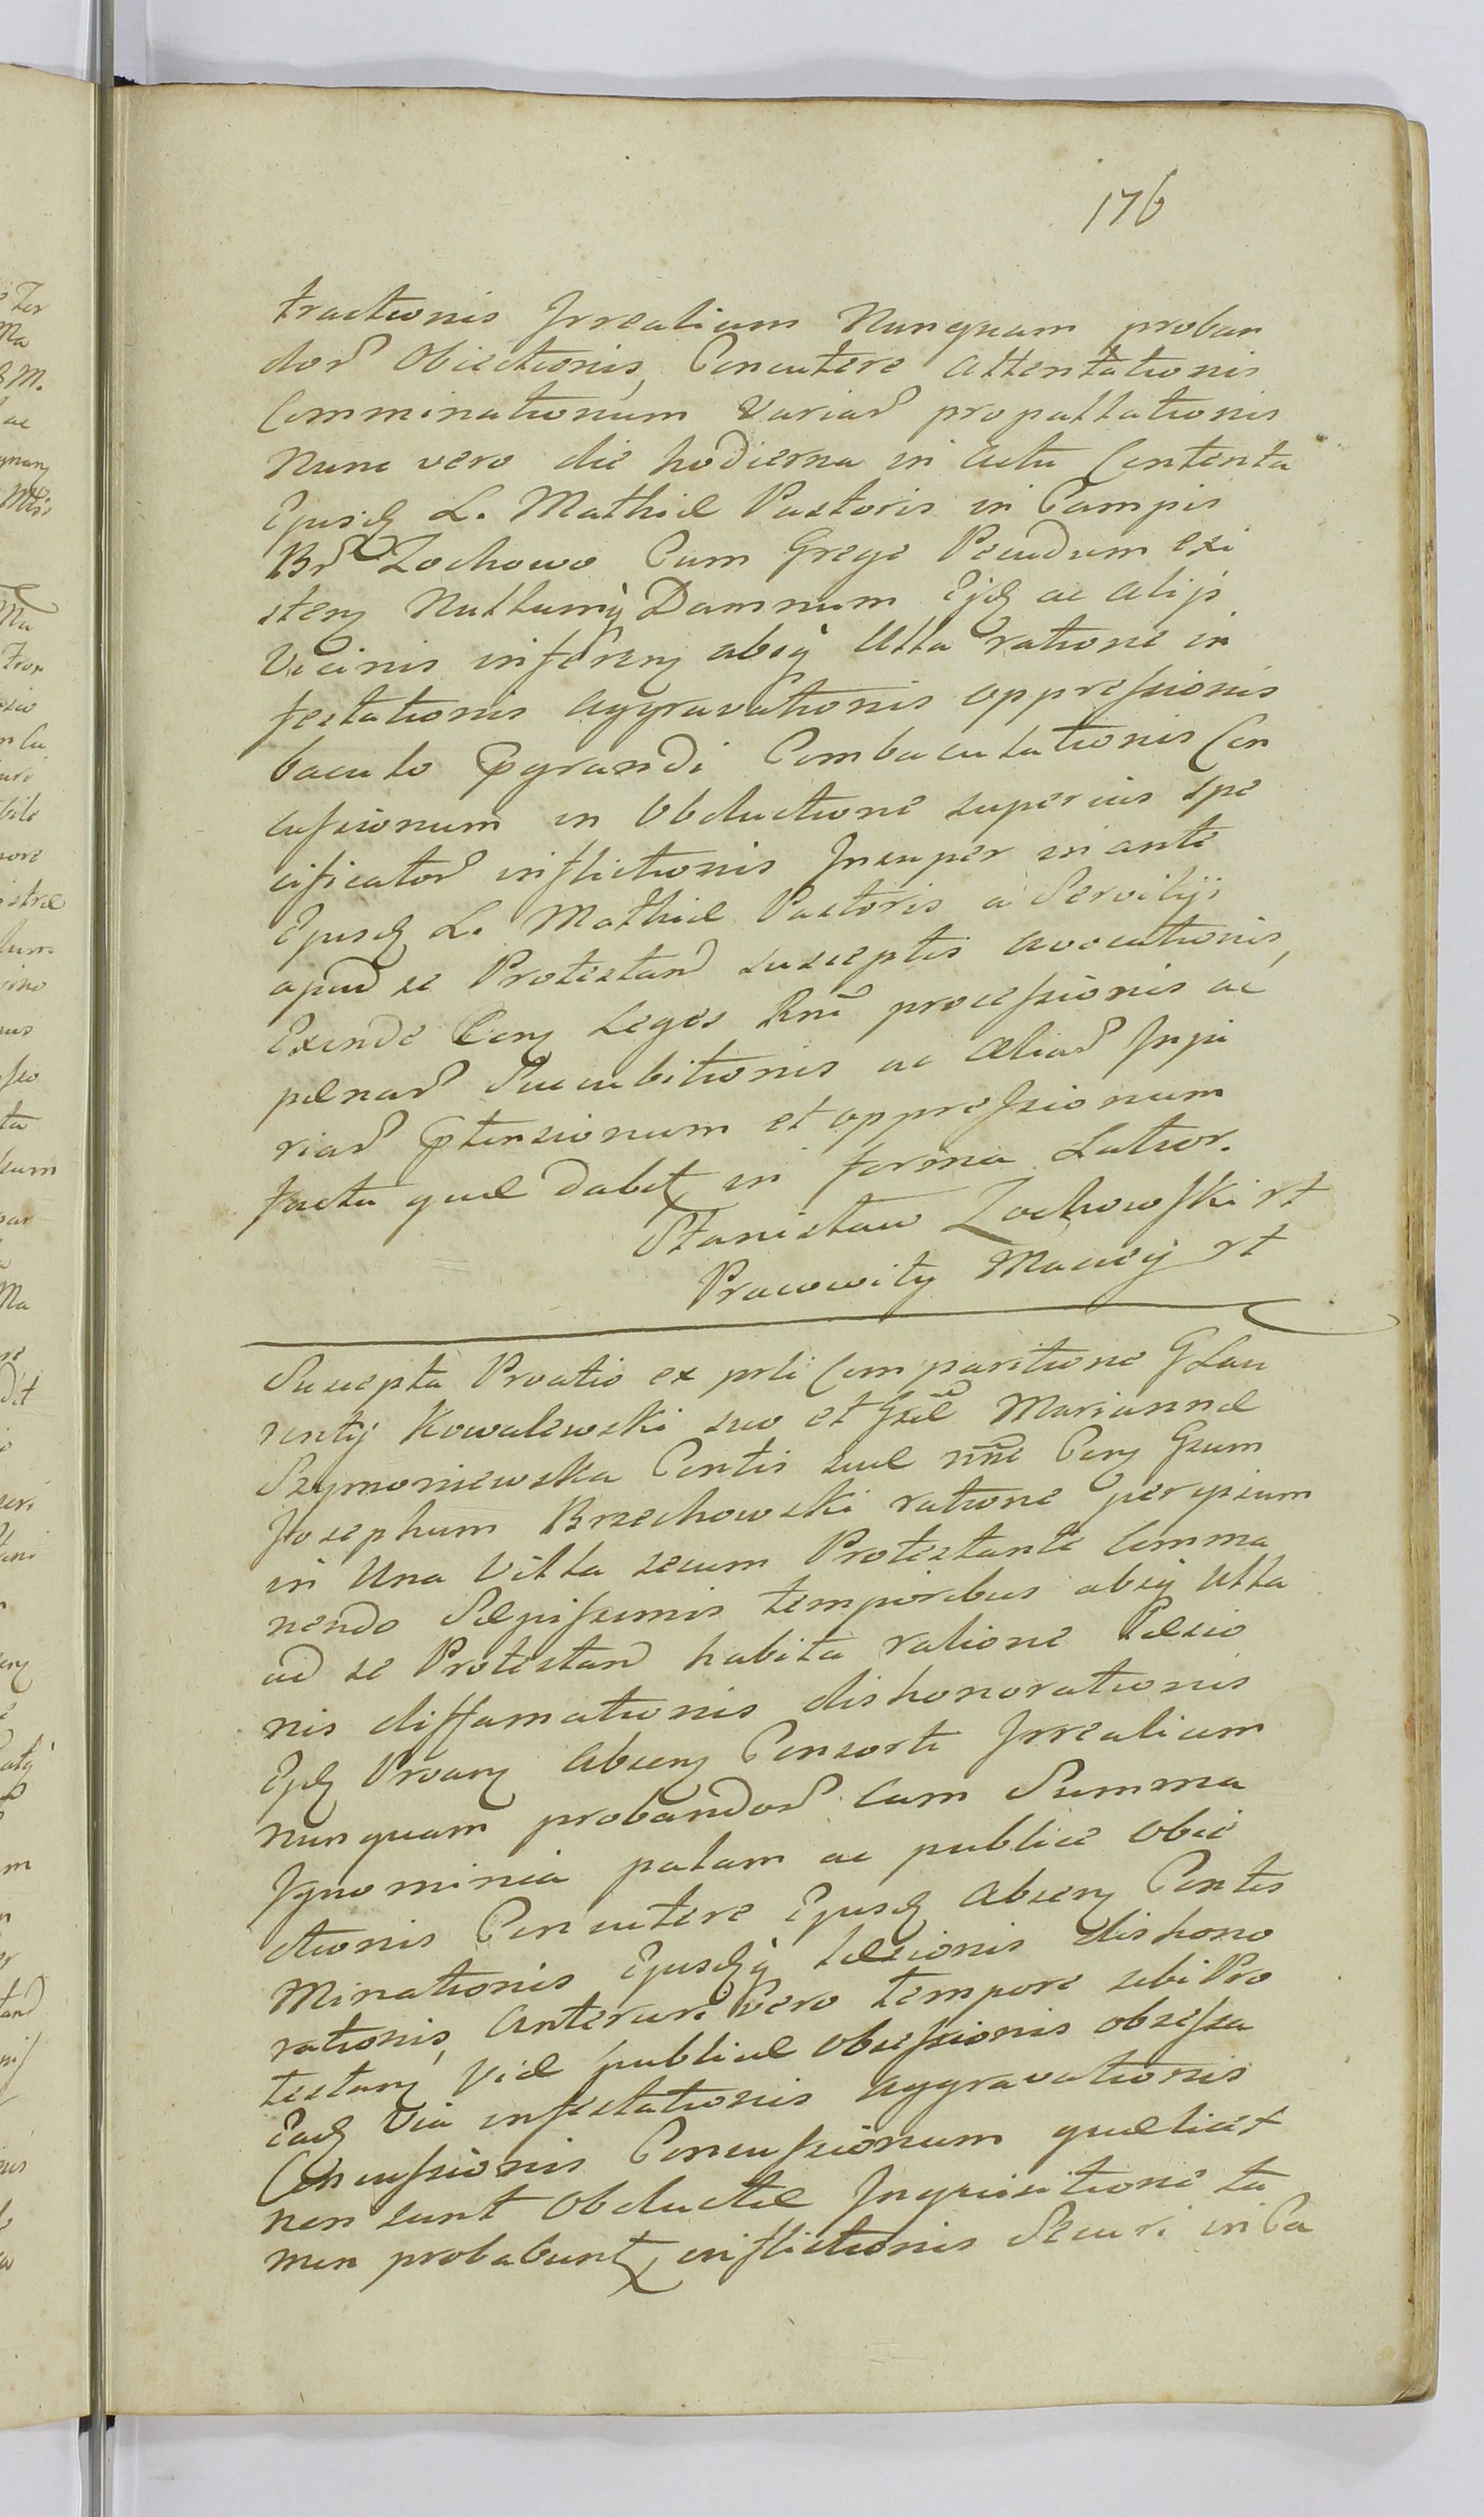 176
tractionis Irrealium Nunquam proban
dor Obiectionis, Concutere attentationis
Comminationum variar propallationis
Nunc vero die hodierna in actu Contenta
Ejusd L. Mathiæ Pastoris in Campis
Br Zochowo Cum Grege Pecudum exi
sten Nullumq Damnum Ejd ac alijs
Vicinis inferen absq Ulla ratione in
festationis aggravationis oppressionis
baculo prgrandi Combaculationis Con
cussionum in Obductione superius spe
cificator inflictionis Insuper in ante
Ejusd L. Mathiæ Pastoris a Servitijs
apud se Protestand susceptis avocationis,
Exinde Con Leges Rni processionis ac
pænar Succubitionis ac aliar Inju
riar prtensionum et oppressionum
facta quæ dabit in forma Latior.
Stanisław Zochowski rt
Pracowity Maciey rt
Suscepta Provatio ex prli Comparitione G Lau
rentij Kowalewski suo et Gsæ Mariannæ
Szymoniewska Contis suæ nne Con Gsum
Josephum Brzechowski ratione per ipsum
in Una Villa secum Protestante Comma
nendo Sæpissimis temporibus absq Ulla
ad se Protestand habita ratione Læsio
nis diffamationis dishonorationis
Ejd Provan absen Consorte Irrealium
nunquam probandor cum Summa
Ignominia palam ac publice Obie
ctionis Concutere Ejusd Absen Contis
Minationis Ejusdq læsionis dishono
rationis, Anteriori vero tempore sibi Pro
testan Viæ publicæ Obsessionis obsessa
Ead Via infestationis aggravationis
Concussionis Concussionum quælicet
non sunt Obductæ Inquisitione ta
men probabunt, inflictionis Securi in Ca